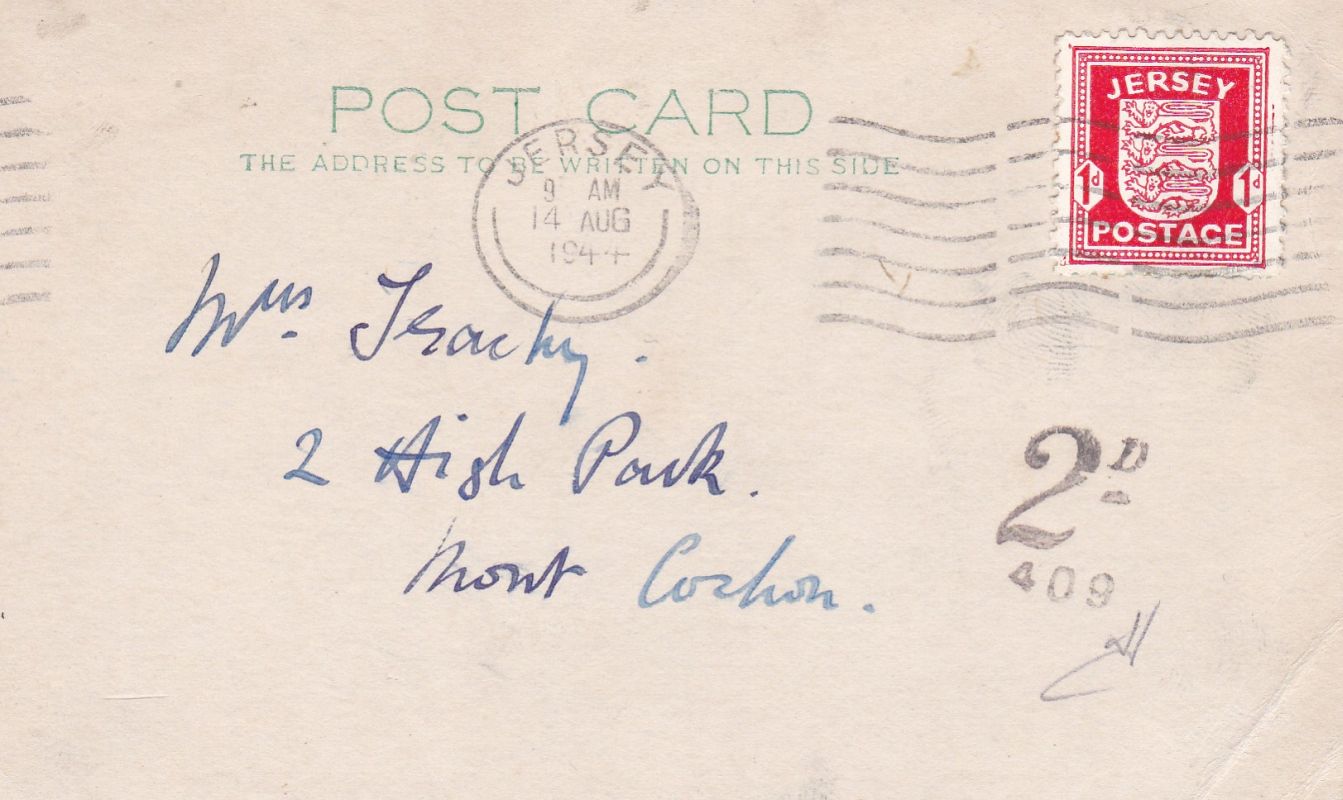 POST CARD
THE ADDRESS TO BE WRITTEN ON THIS SIDE
JERSEY
9 AM
14 AUG
1944
JERSEY
1d 1d
POSTAGE
Mrs.
2 High Park.
Mont Cochon.
2D
409